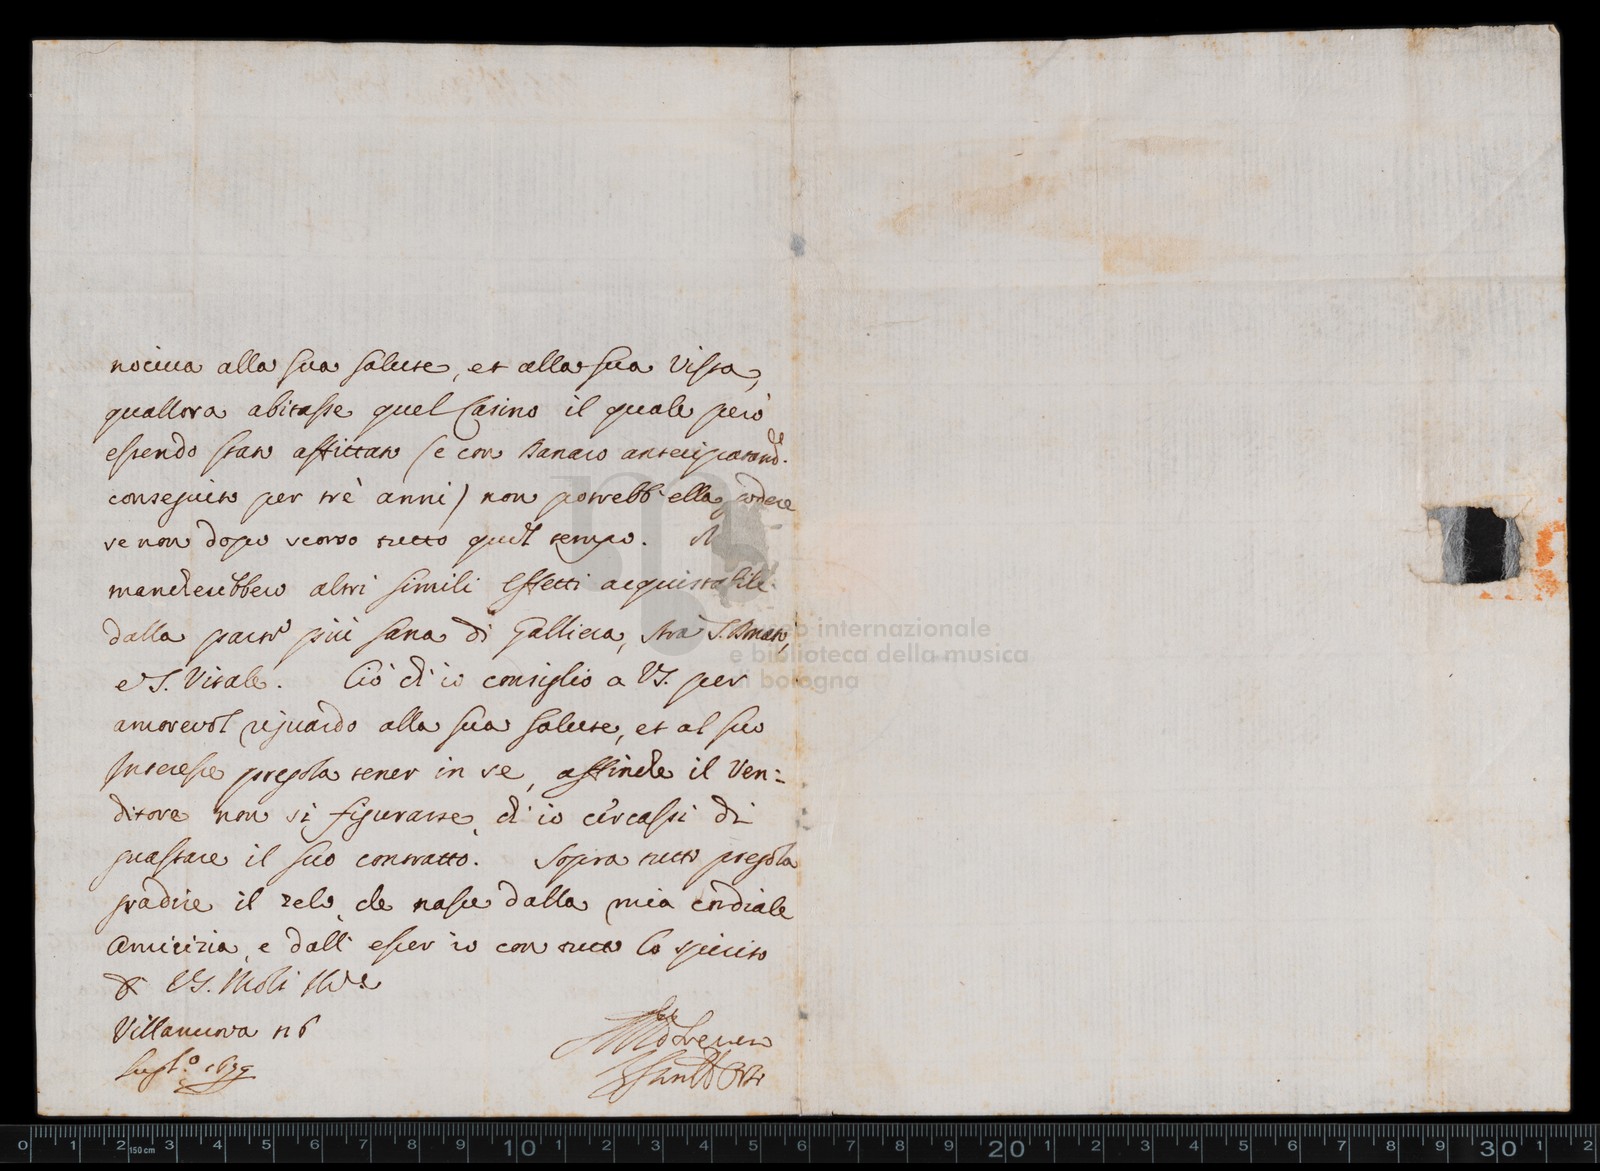 nociva alla sua salute, et alla sua Vista,
quallora abitasse quel Casino il quale però
essendo stato affittato (e con Danaro
conseguito per trè anni) non potrebb'ella godere
se non dopo scorso tutto quel tempo.
mancherebbero altri simili effetti acquistabili
dalla parte più sana di Galliera, strà S. Donato,
e S. Vitale. Ciò ch'io consiglio a VS. per
amorevol riguardo alla sua salute, et al suo
Interesse pregola tener in se, affinche il Ven=
ditore non si figurasse, ch'io cercassi di
guastare il suo contratto. Sopra tutto pregola
gradire il zelo, che nasce dalla mia cordiale
Amicizia, e dall'esser io con tutto lo spirito
Di VS. Molto Ill.re
Villanuova n 6
Lugl.o 1699
museo internazionale
e biblioteca della musica
di bologna
0 1 2 3 4 5 6 7 8 9 10 1 2 3 4 5 6 7 8 9 20 1 2 3 4 5 6 7 8 9 30 1 2
150 cm